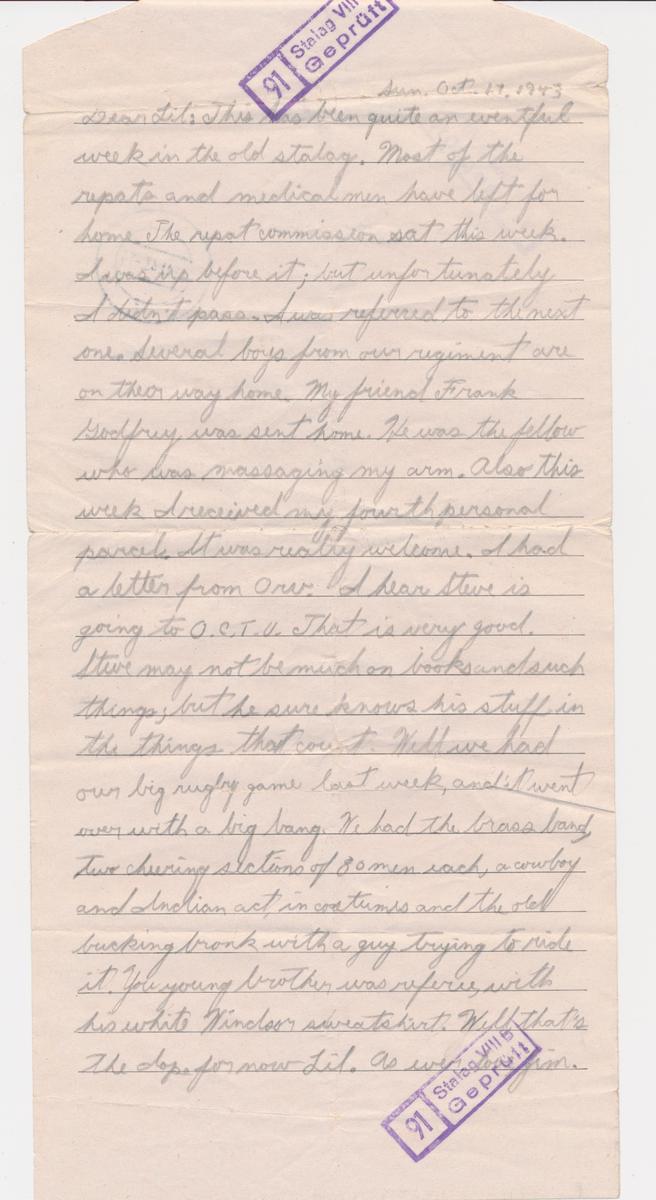 91 Stalag VIII B
Geprüft
Sun. Oct. 17, 1943
Dear Lil: This has been quite an eventful
week in the old stalag. Most of the
repats and medical men have left for
home. The repat commission sat this week.
I was up before it; but unfortunately
I didn't pass. I was referred to the next
one. Several boys from our regiment are
on their way home. My friend Frank
Godfrey was sent home. He was the fellow
who was massaging my arm. Also this
week I received my fourth personal
parcel. It was really welcome. I had
a letter from Orv. I hear Steve is
going to O.C.T.U. That is very good.
Steve may not be much on books and such
things; but he sure knows his stuff in
the things that count. Well we had
our big rugby game last week, and it went
over with a big bang. We had the brass band,
two cheering sections of 80 men each, a cowboy
and Indian act, in costumes and the old
bucking bronk with a guy trying to ride
it. You young brother was referee, with
his white Windsor sweatshirt. Well that's
the dope for now Lil. As ever love Jim.
91 Stalag VIII B
Geprüft